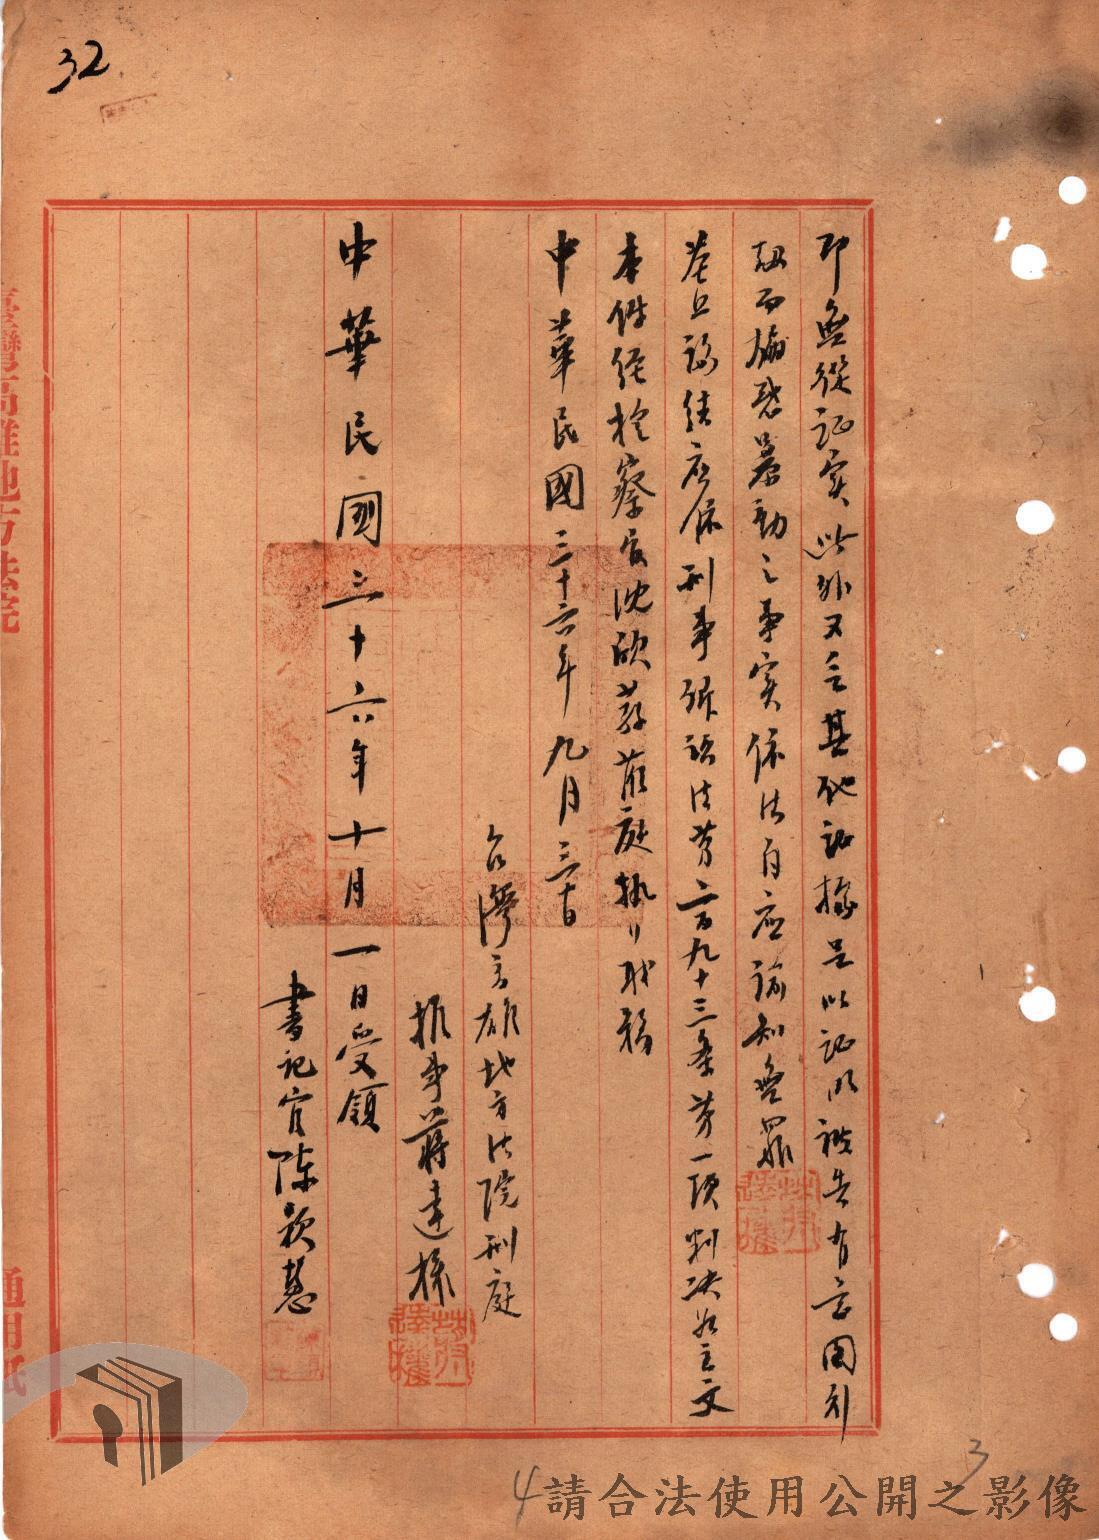 32
即無從证实此外又无其他证據足以证明被告有意圖引
誘而煽惑暴動之事实依法自应諭知無罪
基上論結应依刑事訴訟法第二百九十三条第一項判决如主文
本件经檢察官沈欣荪蒞庭執行职務
中華民國三十六年九月三十日
台灣高雄地方法院刑庭
推事蔣達
中華民國三十六年十月一日受領
書記官陈毅慧
臺灣高雄地方法院
通用紙
3
4
請合法使用公開之影像